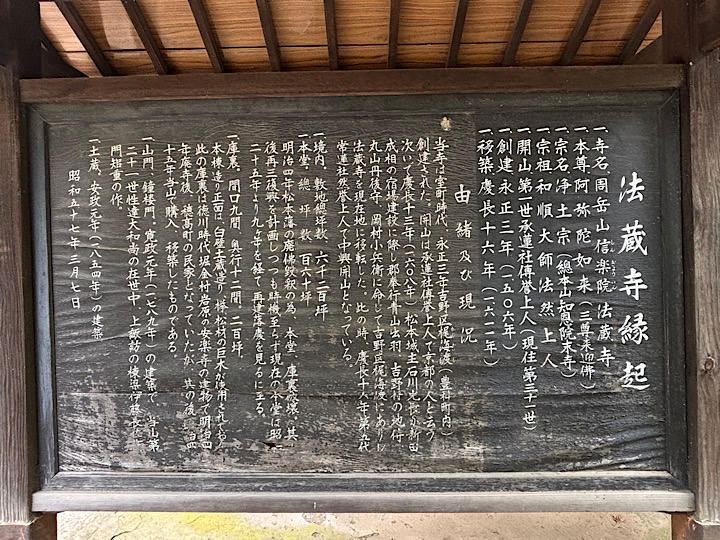 法蔵寺縁起
一、寺名、周岳山信楽院法蔵寺
一、本尊阿弥陀如来(三尊来迎佛)
一、宗名、浄土宗(總本山知恩院末寺)
一、宗祖和順大師法然上人
一、開山第一世承運社傳譽上人(現住第三十二世)
一、創建永正三年(一五〇六年)
一、移築慶長十六年(一六一一年)
由緒及び現況
当寺は室町時代、永正三年吉野区梶海渡(豊科町内)
創建された。開山は承運社傳譽上人で京都の人と云う
次いで慶長十三年(一六〇八年)、松本城主石川光長が新田
成相の宿場建設に際し郡奉行青山石羽、吉野村の地侍
丸山丹後守、岡村小兵衛に命じて吉野区梶海渡にありし
法蔵寺を現在地に移転した。此の時、慶長十六年第九代
常蓮社然譽上人で中興開山となっている。
一、境内、敷地總坪数、六千二百坪
一、本堂、總坪数、百六十坪
明治四年松本藩の廃佛毀釈の為、本堂、庫裏破壊、其
後再三復興を計画しつつも時機至らず現在の本堂は昭和
二十五年より九ヶ年を経て再建落慶を見るに至る。
一、庫裏、間口九間、奥行十二間、二百坪、
本棟造り正面は、白壁土蔵造り欅松材の巨木が使用されており
此の庫裏は徳川時代堀金村岩原の安楽寺の建物で明治四
年廃寺後、穂高町の民家となっていたが、其の後、
十五年当寺で購入、移築したものである。
一、山門、鐘楼門、寛政元年(一七八九年)の建築で、当山第
二十一世性達大和尚の在世中、上諏訪の棟梁伊藤長
門超重の作。
一、土蔵、安政元年(一八五四年)の建築
昭和五十七年三月七日